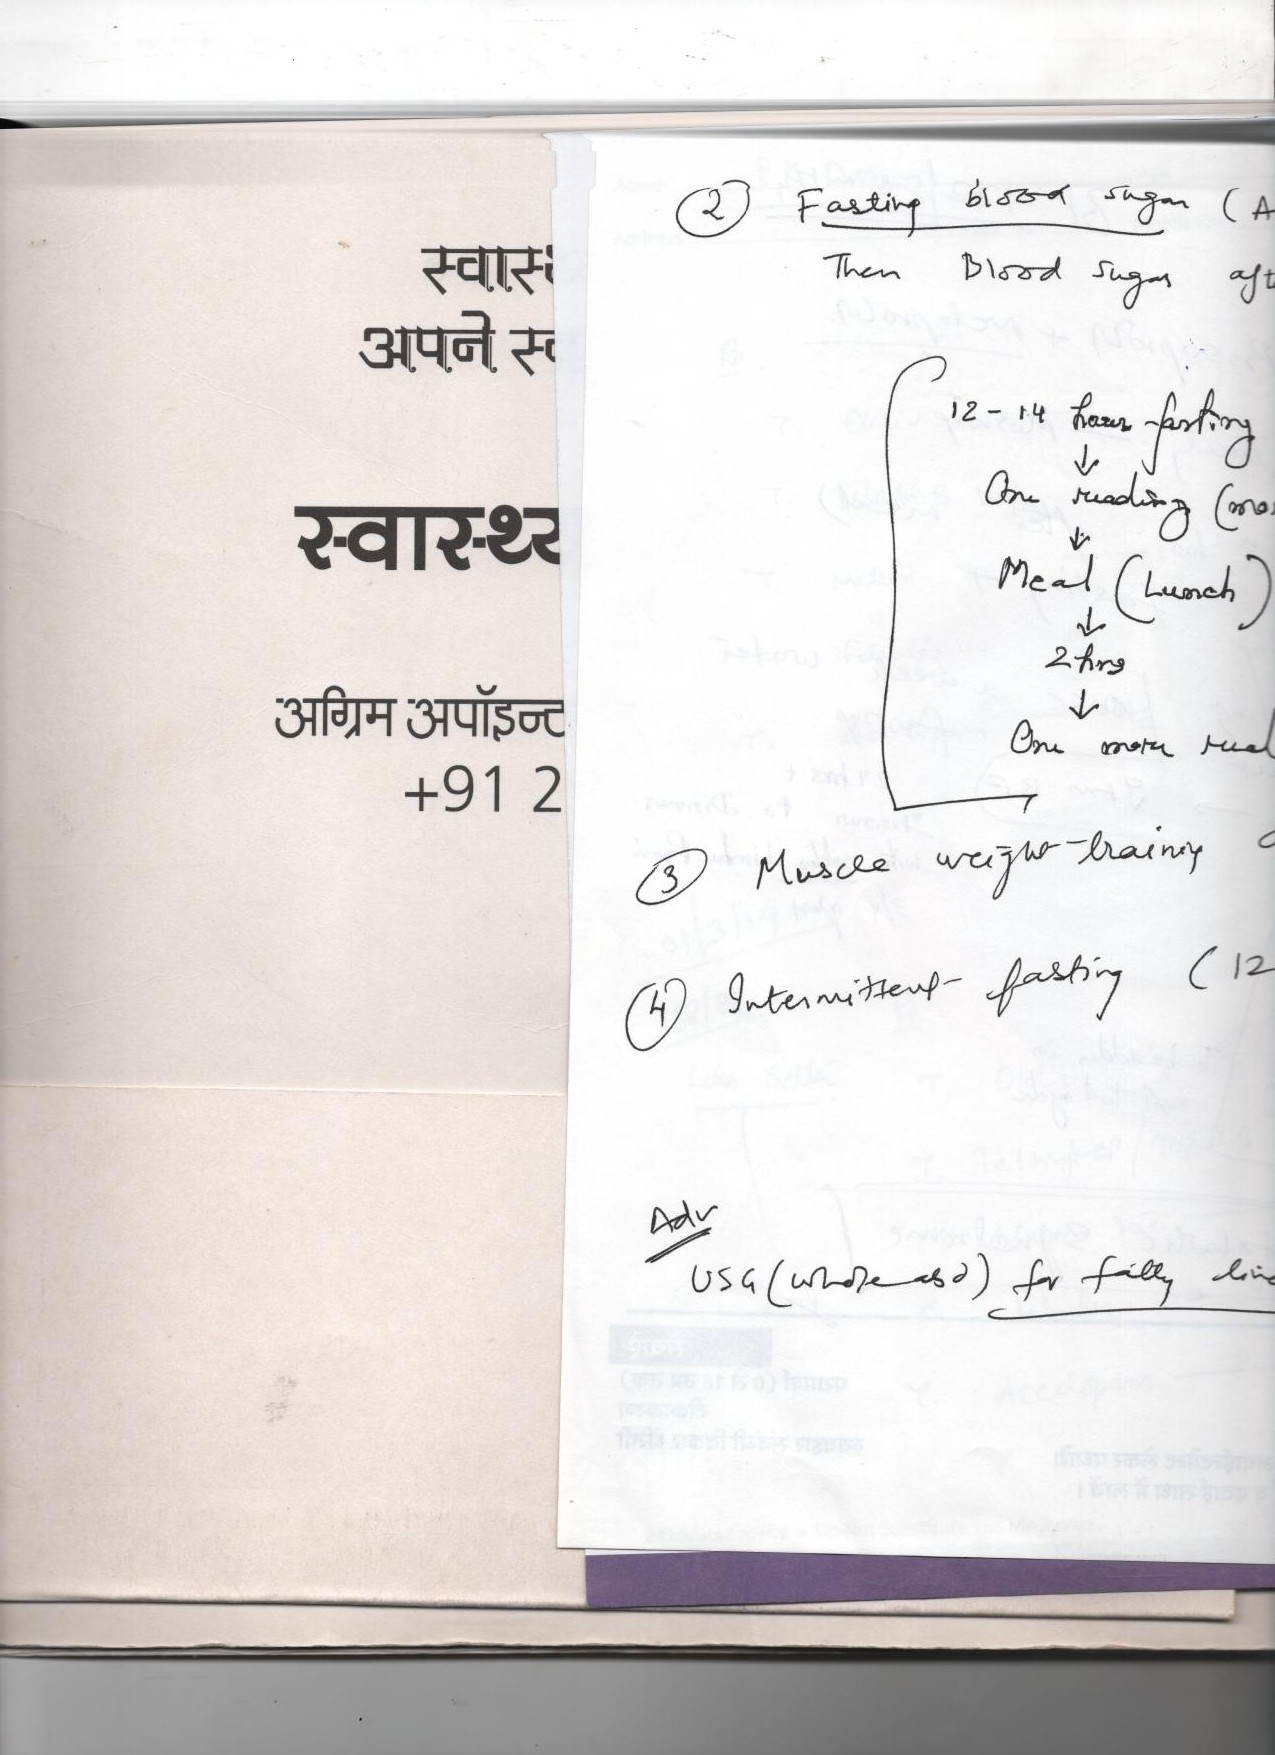 स्वास्थ्
अपने स्व
स्वास्थ्य
अग्रिम अपॉइन्ट
+91 2
② Fasting blood sugar (A
Then Blood sugar aft
12-14 hours fasting
↓
One reading (mor
↓
Meal (Lunch)
↓
2 hrs
↓
One more read
③ Muscle weight-training
④ Intermittent fasting (12
Adv
USG (whole abd) for fatty live